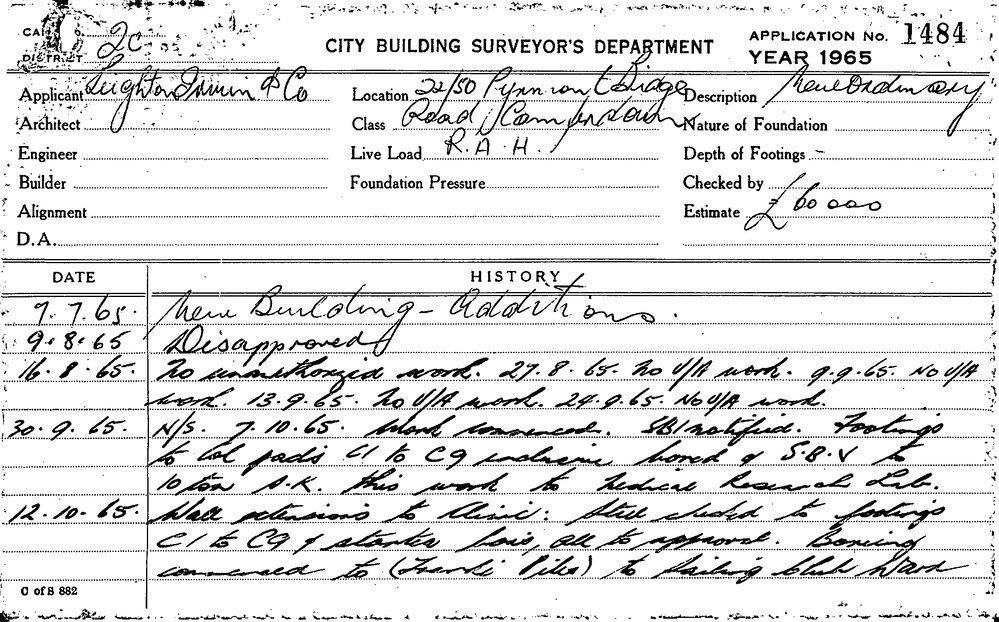 2C
DISTRICT
CITY BUILDING SURVEYOR'S DEPARTMENT
APPLICATION No. 1484
YEAR 1965
Applicant Leighton Irwin & Co
Location 22/50 Pyrmont Bridge
Description New Ordinary
Architect
Class Road, Camperdown
Nature of Foundation
Engineer
Live Load R.A.H.
Depth of Footings -
Builder
Foundation Pressure
Checked by
Alignment
Estimate £60000
D.A.
DATE
HISTORY
9.7.65. New Building - Additions.
9.8.65 Disapproved
16.8.65. No unauthorized work. 27.8.65. No U/A work. 9.9.65. No U/A
work. 13.9.65. No U/A work. 24.9.65. No U/A work.
30.9.65. N/S. 7.10.65. Work commenced. SBI notified. Footings
to Col pads C1 to C9 inclusive bored & S.B.V to
10 ton O.K. this work to Medical Research Lab.
12.10.65. Wall extensions to Clinic: Steel checked to footings
C1 to C9 & starter bars, all to approval. Boring
commenced to (Franki Piles) to Sailing Club Ward
C of S 882